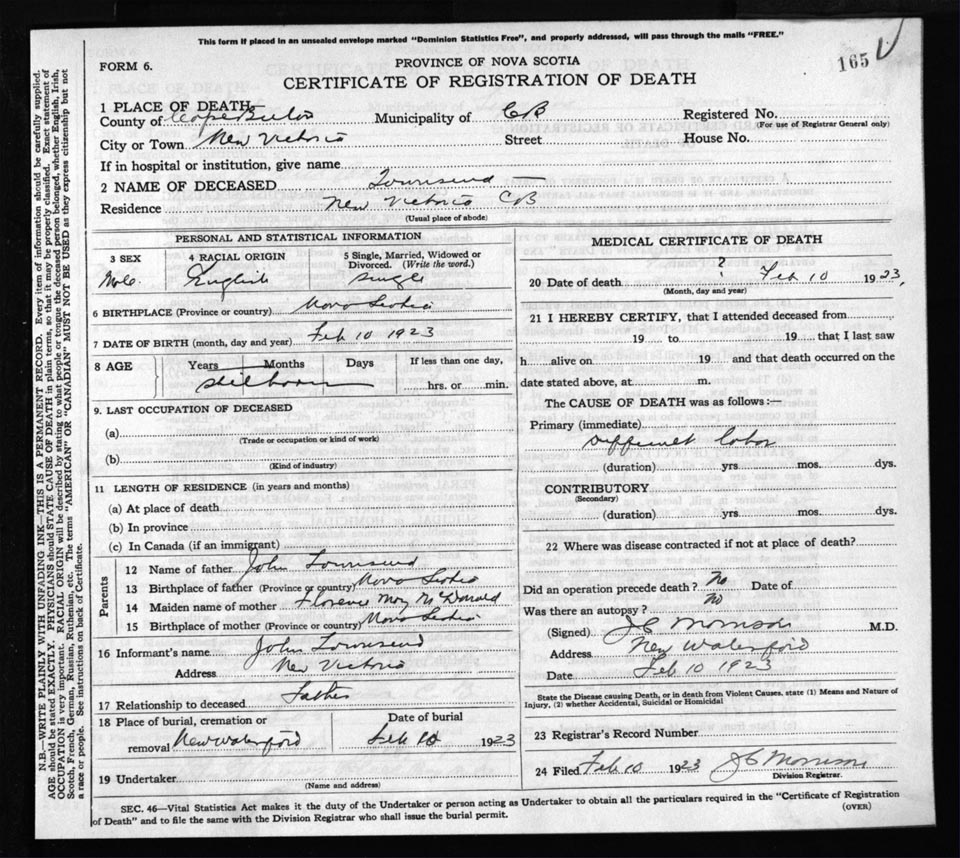 This form if placed in an unsealed envelope marked "Dominion Statistics Free", and properly addressed, will pass through the mails "FREE."
165
FORM 6.
PROVINCE OF NOVA SCOTIA
CERTIFICATE OF REGISTRATION OF DEATH
1 PLACE OF DEATH
County of Cape Breton Municipality of CB Registered No.
(For use of Registrar General only)
City or Town New Victoria Street House No.
If in hospital or institution, give name
2 NAME OF DECEASED Townsend
Residence New Victoria CB
(Usual place of abode)
PERSONAL AND STATISTICAL INFORMATION
3 SEX 4 RACIAL ORIGIN 5 Single, Married, Widowed or Divorced. (Write the word.)
Male English Single
6 BIRTHPLACE (Province or country) Nova Scotia
7 DATE OF BIRTH (month, day and year) Feb 10 1923
8 AGE Years Months Days If less than one day,
Stillborn hrs. or min.
9. LAST OCCUPATION OF DECEASED
(a)
(Trade or occupation or kind of work)
(b)
(Kind of industry)
11 LENGTH OF RESIDENCE (in years and months)
(a) At place of death
(b) In province
(c) In Canada (if an immigrant)
Parents
12 Name of father John Townsend
13 Birthplace of father (Province or country) Nova Scotia
14 Maiden name of mother Florence May McDonald
15 Birthplace of mother (Province or country) Nova Scotia
16 Informant's name John Townsend
Address New Victoria
17 Relationship to deceased Father
18 Place of burial, cremation or Date of burial
removal New Waterford Feb 10 1923
19 Undertaker
(Name and address)
MEDICAL CERTIFICATE OF DEATH
?
20 Date of death Feb 10 1923,
(Month, day and year)
21 I HEREBY CERTIFY, that I attended deceased from
19 to 19 that I last saw
h alive on 19 and that death occurred on the
date stated above, at m.
The CAUSE OF DEATH was as follows:—
Primary (immediate)
Difficult labor
(duration) yrs. mos. dys.
CONTRIBUTORY
(Secondary)
(duration) yrs. mos. dys.
22 Where was disease contracted if not at place of death?
Did an operation precede death? No Date of
Was there an autopsy? No
(Signed) J C Morrison M.D.
Address New Waterford
Date Feb 10 1923
State the Disease causing Death, or in death from Violent Causes, state (1) Means and Nature of
Injury, (2) whether Accidental, Suicidal or Homicidal
23 Registrar's Record Number
24 Filed Feb 10 1923 J C Morrison
Division Registrar.
SEC. 46—Vital Statistics Act makes it the duty of the Undertaker or person acting as Undertaker to obtain all the particulars required in the "Certificate of Registration
of Death" and to file the same with the Division Registrar who shall issue the burial permit.
(OVER)
N.B.—WRITE PLAINLY WITH UNFADING INK—THIS IS A PERMANENT RECORD. Every item of information should be carefully supplied.
AGE should be stated EXACTLY. PHYSICIANS should STATE CAUSE OF DEATH in plain terms, so that it may be properly classified. Exact statement of
OCCUPATION is very important. RACIAL ORIGIN will be described by stating to what people or tongue the deceased person belonged, whether English, Irish,
Scotch, French, German, Russian, Ruthenian, etc. The terms "AMERICAN" or "CANADIAN" MUST NOT BE USED as they express citizenship but not
a race or people. See instructions on back of Certificate.